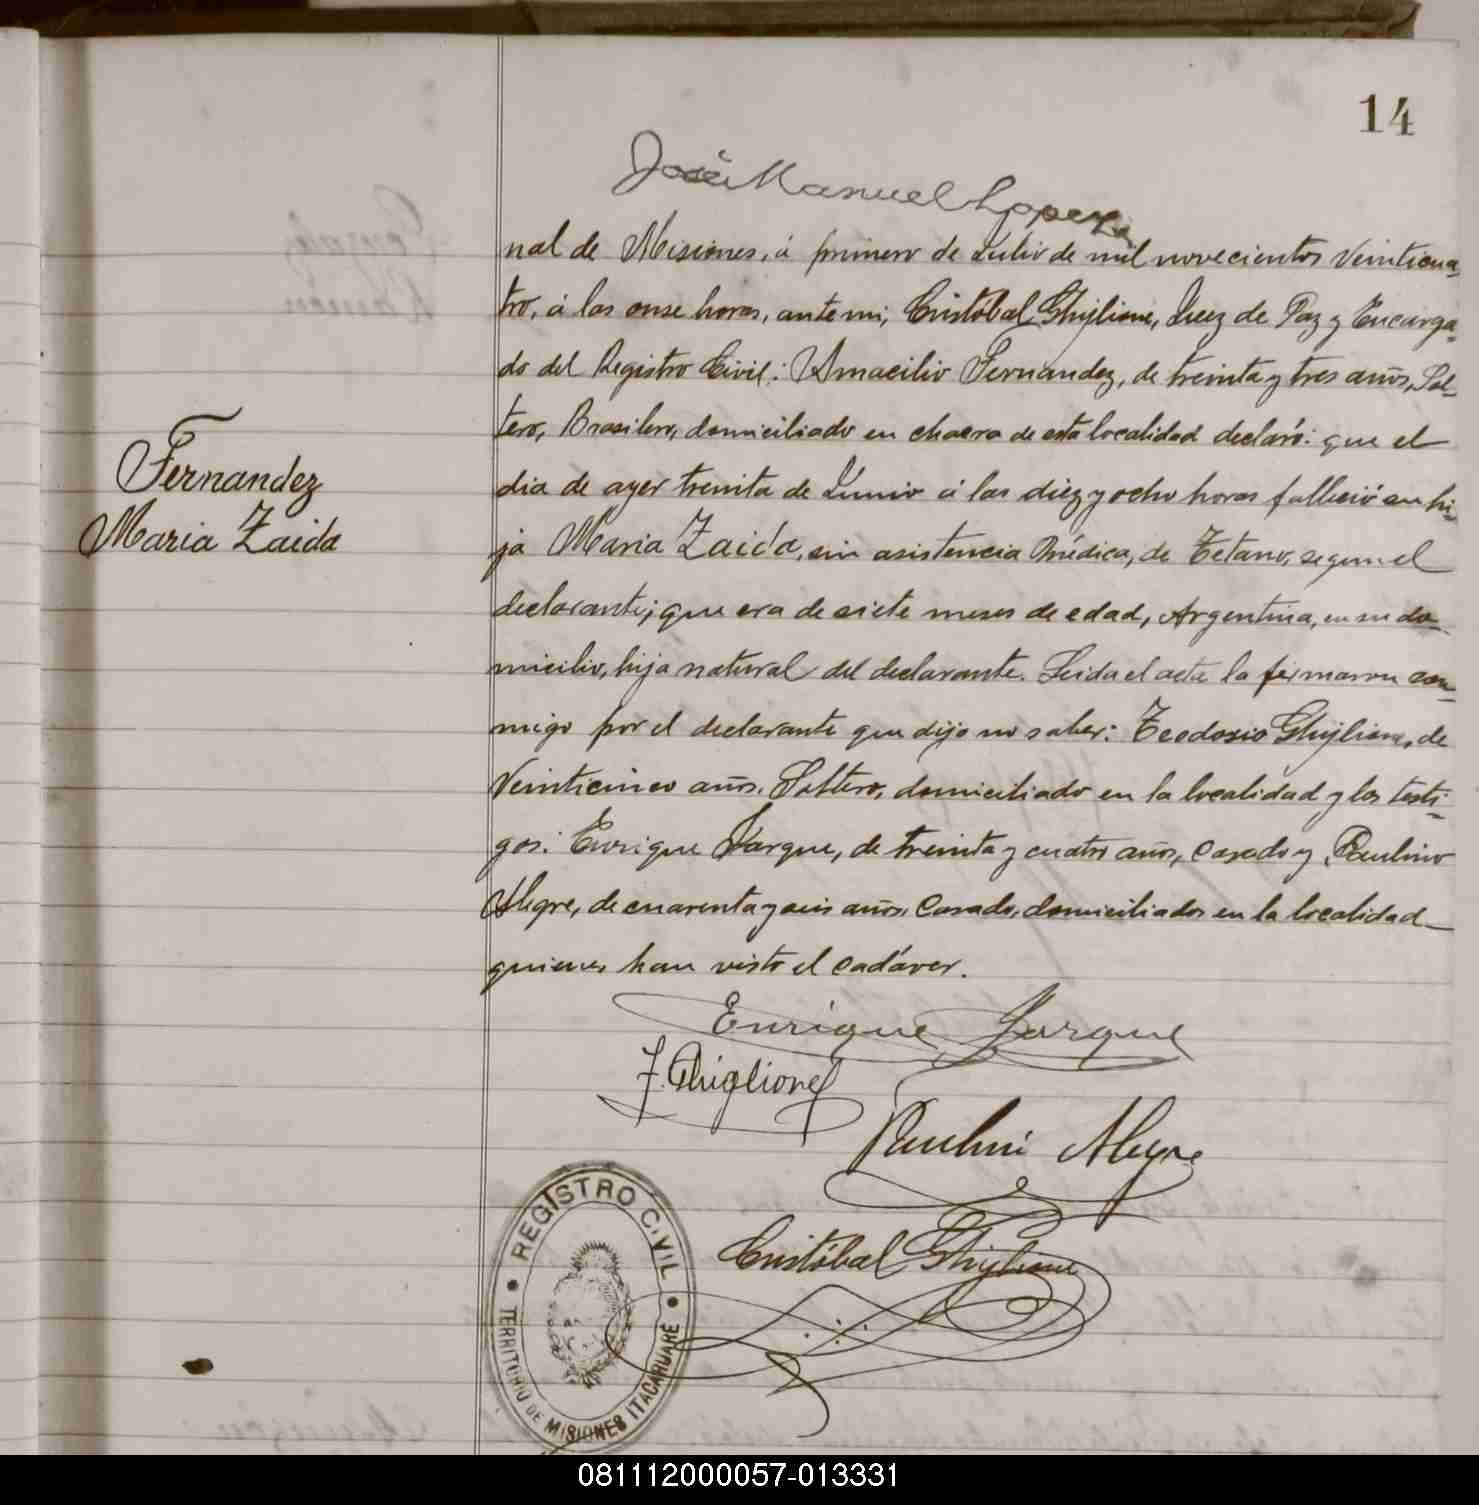 14
José Manuel Lopez
nal de Misiones, á primero de Julio de mil novecientos veinticua-
tro, á las onse horas, ante mi, Cristóbal Ghiglione, Juez de Paz y Encarga-
do del Registro Civil: Amacilio Fernandez, de treinta y tres años, Sol-
tero, Brasilero, domiciliado en chacra de esta localidad declaró: que el
dia de ayer treinta de Junio á las diez y ocho horas falleció su hi-
ja Maria Zaida, sin asistencia médica, de Tetano, segun el
declarante; que era de siete meses de edad, Argentina, en su do-
micilio, hija natural del declarante. Leida el acta la firmaron con-
migo por el declarante que dijo no saber: Teodosio Ghiglione, de
Veinticinco años, Soltero, domiciliado en la localidad y los testi-
gos: Enrique Jarque, de treinta y cuatro años, Casado y Paulino
Alegre, de cuarenta y seis años, Casado, domiciliados en la localidad
quienes han visto el cadáver.
Fernandez
Maria Zaida
Enrique Jarque
T. Ghiglione
Paulino Alegre
Cristóbal Ghiglione
REGISTRO CIVIL
TERRITORIO DE MISIONES ITACARUARÉ
081112000057-013331